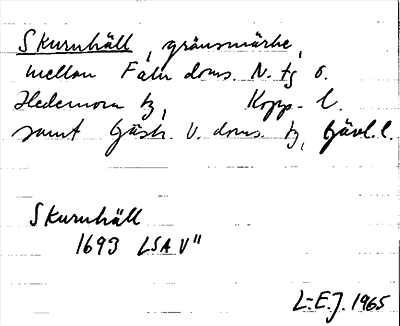 Skurnhäll, gränsmärke,
mellan Falu doms. N. tg o.
Hedemora tg, Kopp. l.
samt Gästr. V. doms. tg, Gävl. l.
Skurnhäll
1693 LSA V"
L-E.J. 1965